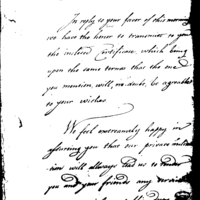 In reply to your favor of this morning
we have the honor to transmit to you
the inclosed Certificate, which being
upon the same terms that the one
you mention, will, no doubt, be agreeable
to your wishes.
We feel extreamly happy in
assuring you that our private
will always lead us to render
you and your friends any services